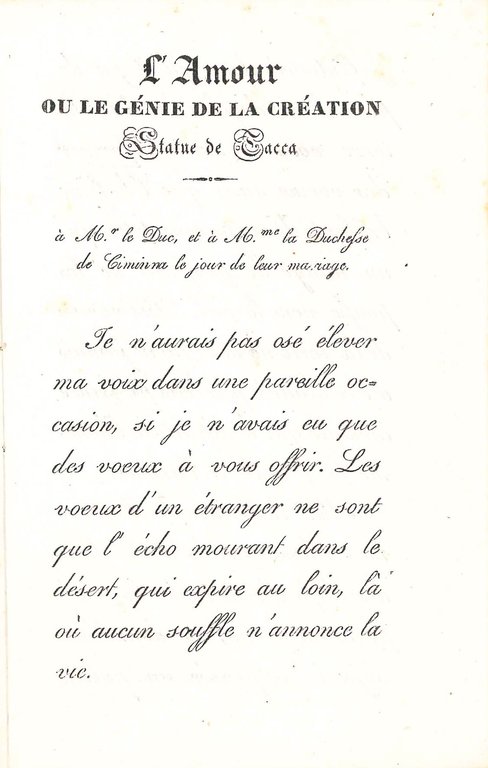 L'Amour
OU LE GÉNIE DE LA CRÉATION
Statue de Tacca
à M.r le Duc, et à M.me la Duchesse
de Ciminna le jour de leur mariage.
Je n'aurais pas osé élever
ma voix dans une pareille oc=
casion, si je n'avais eu que
des voeux à vous offrir. Les
voeux d'un étranger ne sont
que l' écho mourant dans le
désert, qui expire au loin, là
où aucun souffle n'annonce la
vie.